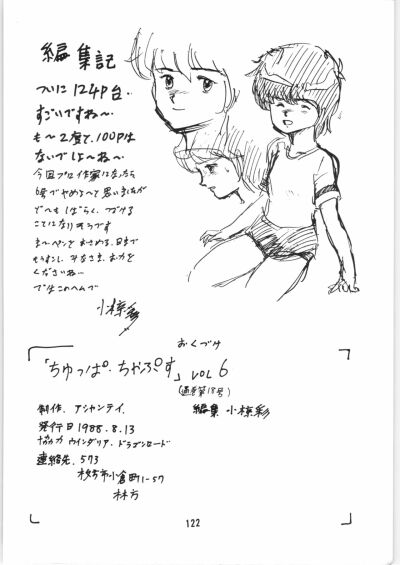 編集記
ついに124P台・・
すごいですね〜
も〜2度で、100Pは
ないでしょ〜ね〜
今回プロ作家になったら
6号でやめよ〜って思いましたが
で〜も しばらく つづける
ことになりそうです
ま〜ペンをおさめる、日まで
みなさま、お力を
くださいね〜
で〜はこのへんで
小椋彩
おくづけ
「ちゅっぱ・ちゃぷす」VOL 6
(通巻第18号)
制作、アシャンテイ、
編集 小椋彩
発行日 1988.8.13
協力 ウインダリア・ドラゴンロード
連絡先、573
枚方市小倉町1-57
林方
122